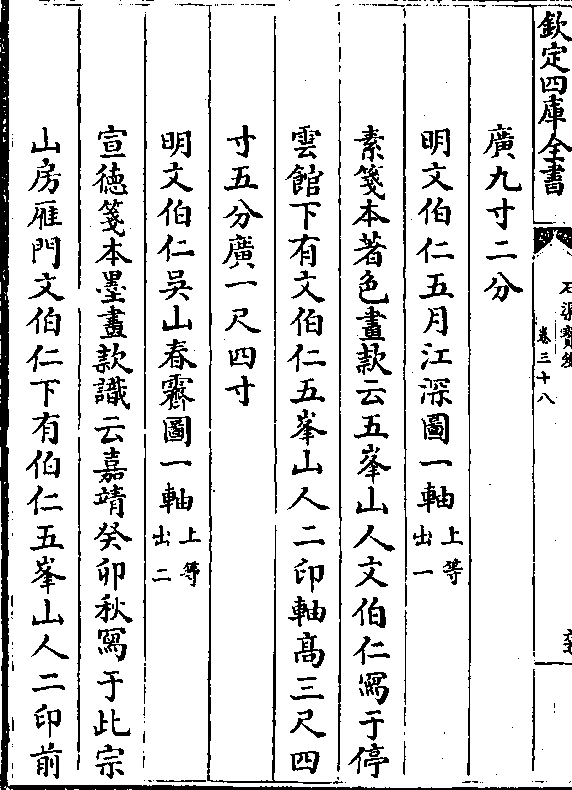 欽定四庫全書
卷三十八
廣九寸二分
明文伯仁五月江深圖一軸上等出一
素箋本著色畫款云五峯山人文伯仁寫于停
雲館下有文伯仁五峯山人二印軸高三尺四
寸五分廣一尺四寸
明文伯仁吳山春霽圖一軸上等出二
宣德箋本墨畫款識云嘉靖癸卯秋寫于此宗
山房雁門文伯仁下有伯仁五峯山人二印前